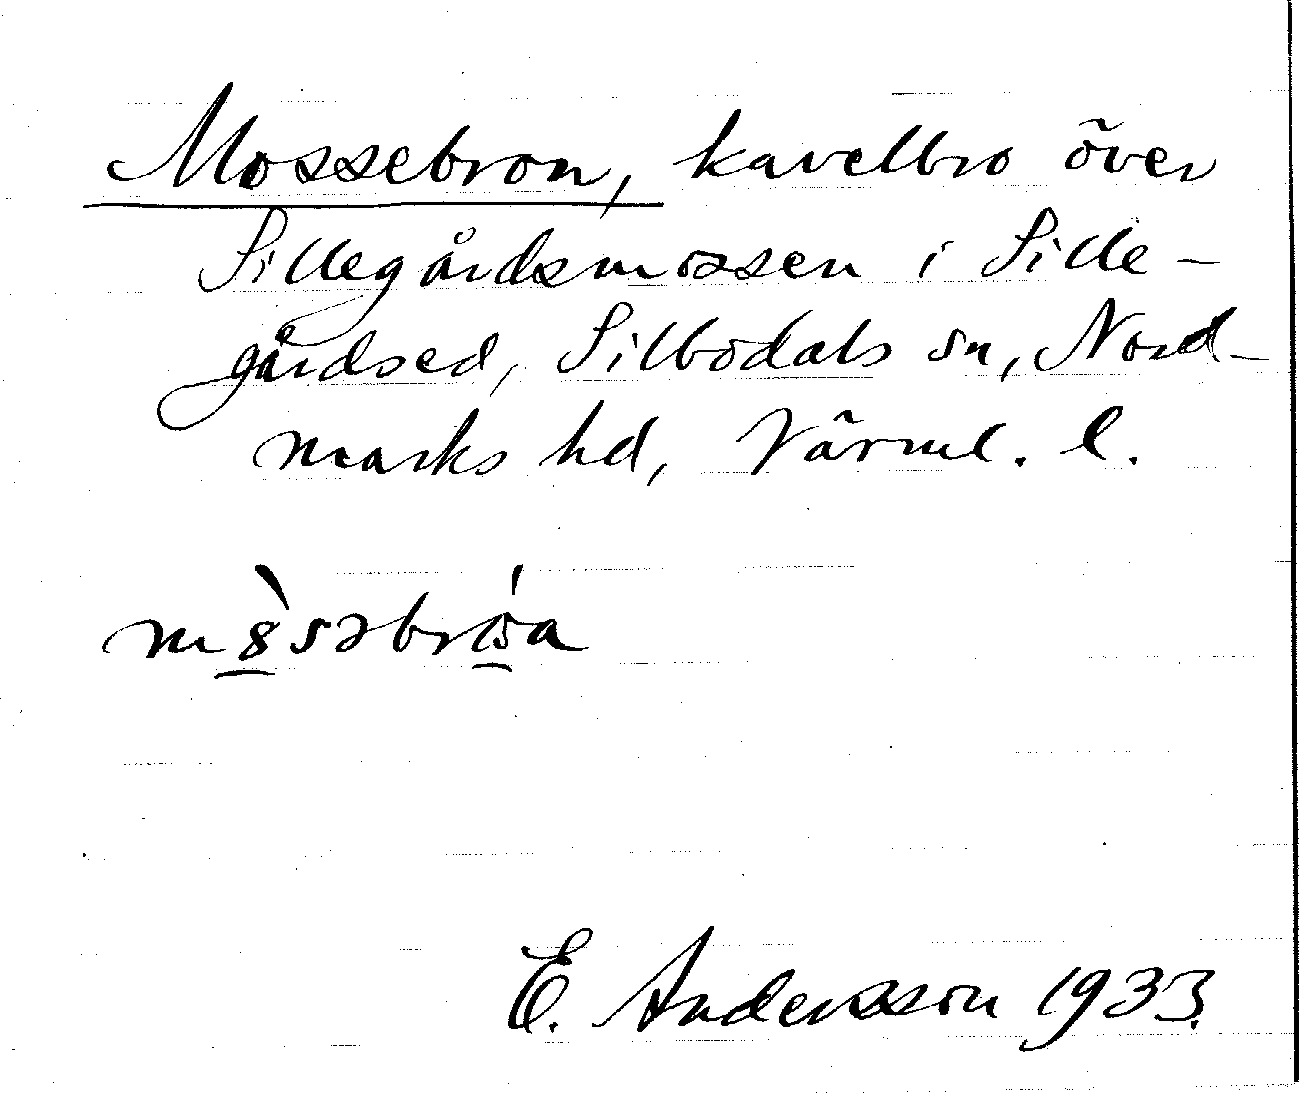 Mossebron, kavelbro över
Sillegårdsmossen i Sille-
gårdsed, Silbodals sn, Nord-
marks hd, Värml. l.
E. Andersson 1933.